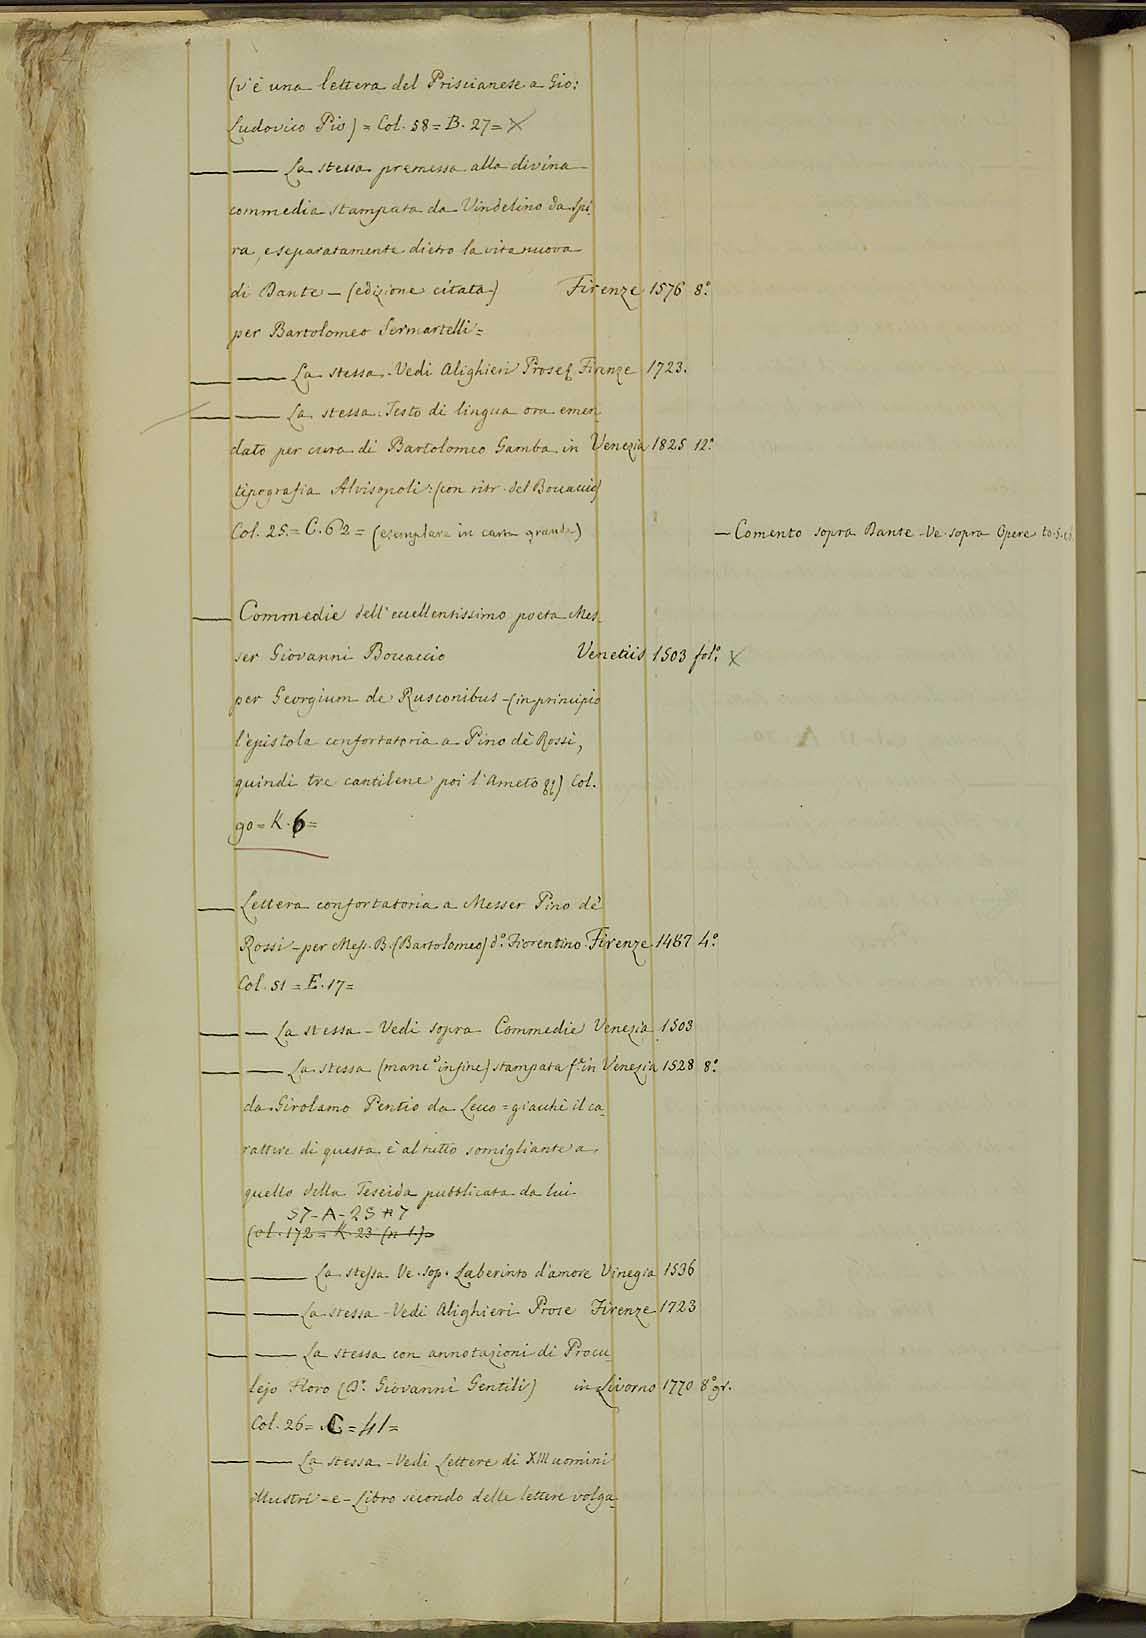 (v'è una lettera del Priscianese a Gio:
Ludovico Pio) = Col. 58 = B. 27 = X
— — La stessa premessa alla divina
commedia stampata da Vindelino da Spi-
ra, e separatamente dietro la vita nuova
di Dante — (edizione citata) Firenze 1576 8.°
per Bartolomeo Sermartelli =
— — La stessa. Vedi Alighieri Prose Firenze 1723.
— — La stessa. Testo di lingua ora emen-
dato per cura di Bartolomeo Gamba in Venezia 1825 12.°
tipografia Alvisopoli: (con ritr. del Boccaccio)
Col. 25. = C. 62 = (esemplare in carta grande)
— Comento sopra Dante - Ve. sopra Opere to. 5.
— Commedie dell'eccellentissimo poeta Mes-
ser Giovanni Boccaccio Venetiis 1503 fol.° X
per Georgium de Rusconibus - (in principio
l'epistola confortatoria a Pino dè Rossi,
quindi tre cantilene poi l'Ameto &) Col.
90 = K. 6 =
— Lettera confortatoria a Messer Pino dè
Rossi - per Mess. B. (Bartolomeo) d.° Fiorentino. Firenze 1487 4.°
Col. 51 = E. 17 =
— — La stessa - Vedi sopra Commedie Venezia 1503
— — La stessa (manc.° in fine) stampata f. in Venezia 1528 8.°
da Girolamo Pentio da Lecco = giacchè il ca-
rattere di questa è al tutto somigliante a
quello della Teseida pubblicata da lui
57 - A - 25 n 7
Col. 172 = K. 23 (n 1) =
— — La stessa Ve. sop. Laberinto d'amore Vinegia 1536
— — La stessa - Vedi Alighieri Prose Firenze 1723
— — La stessa con annotazioni di Procu-
lejo Floro (D.r Giovanni Gentili) in Livorno 1770 8.° gr.
Col. 26 = C = 41 =
— — La stessa - Vedi Lettere di XIII uomini
illustri - e - Libro secondo delle lettere volga-